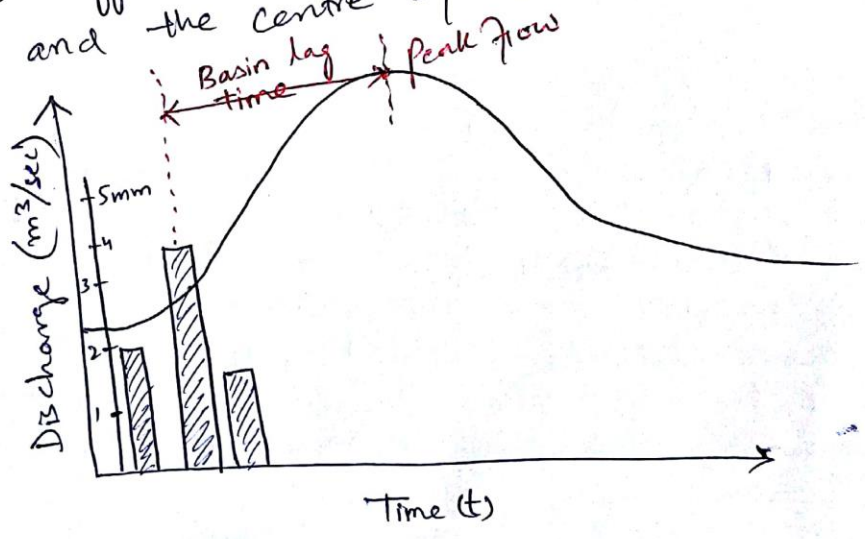 and the centre
Basin lag
time
Peak flow
Discharge (m³/sec)
5mm
4
3
2
1
Time (t)